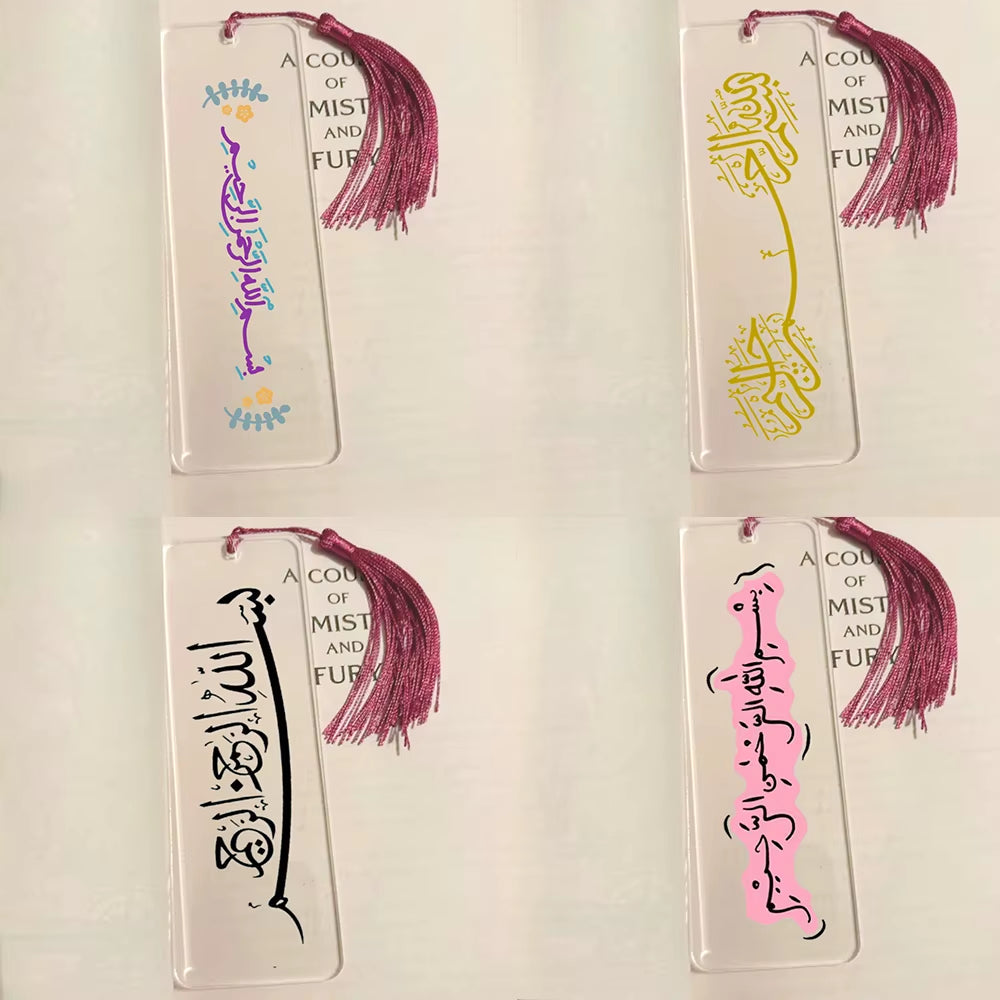 بِسْمِ اللَّهِ الرَّحْمَنِ الرَّحِيمِ
A COU
OF
MIST
AND
FURY
بسم الله الرحمن الرحيم
A COU
OF
MIST
AND
FURY
بسم الله الرحمن الرحيم
A COU
OF
MIST
AND
FURY
بسم الله الرحمن الرحيم
A COU
OF
MIST
AND
FURY